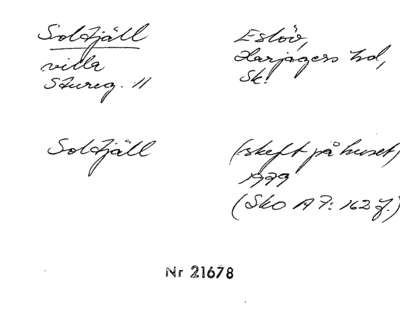 Solfjäll
villa
Stureg. 11
Eslöv,
Harjagers hd,
Sk.
Solfjäll
(skrift på huset)
1979
(Sko A 7: 162 f.)
Nr 21678